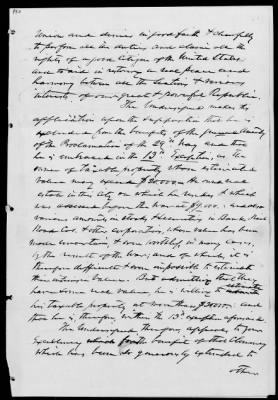 Union and desires in good faith & cheerfully
to perform all the duties and claim all the
rights of a good citizen of the United States
and to aid in restoring a real peace and
harmony between all the sections & various
interests of our great & powerful Republic.
The Undersigned makes this
application upon the supposition that he is
excluded from the benefits of the general Amnesty
of the Proclamation of the 29th May and that
he is embraced in the 13th Exception, as the
owner of taxable property whose estimated
value may exceed $20000. He owned real
estate in this City on which he resides & which
was assessed before the war at $9,000. and also
various amounts in Stocks & Securities in Banks, Rail
Road Cos. & other corporations, whose value has been
made uncertain, & even worthless in many cases,
by the result of the war; and of which, it is
therefore difficult & even impossible to estimate
the intrinsic value. But admitting that they
have some real value, he is willing to estimate
his taxable property at more than $20000. and
that he is therefore, within the 13th exception aforesaid.
The Undersigned, therefore, appeals to your
Excellency for the benefit of that Clemency
which has been so generously extended to
others